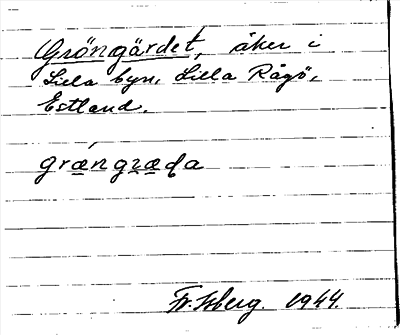 Gröngärdet, åker i
Lilla byn, Lilla Rågö,
Estland.
grængræda
Fr. Isberg. 1944.